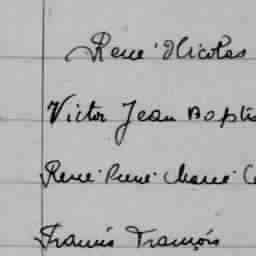 René Nicolas
Victor Jean Baptis
René Pierre Marie C
Francis François